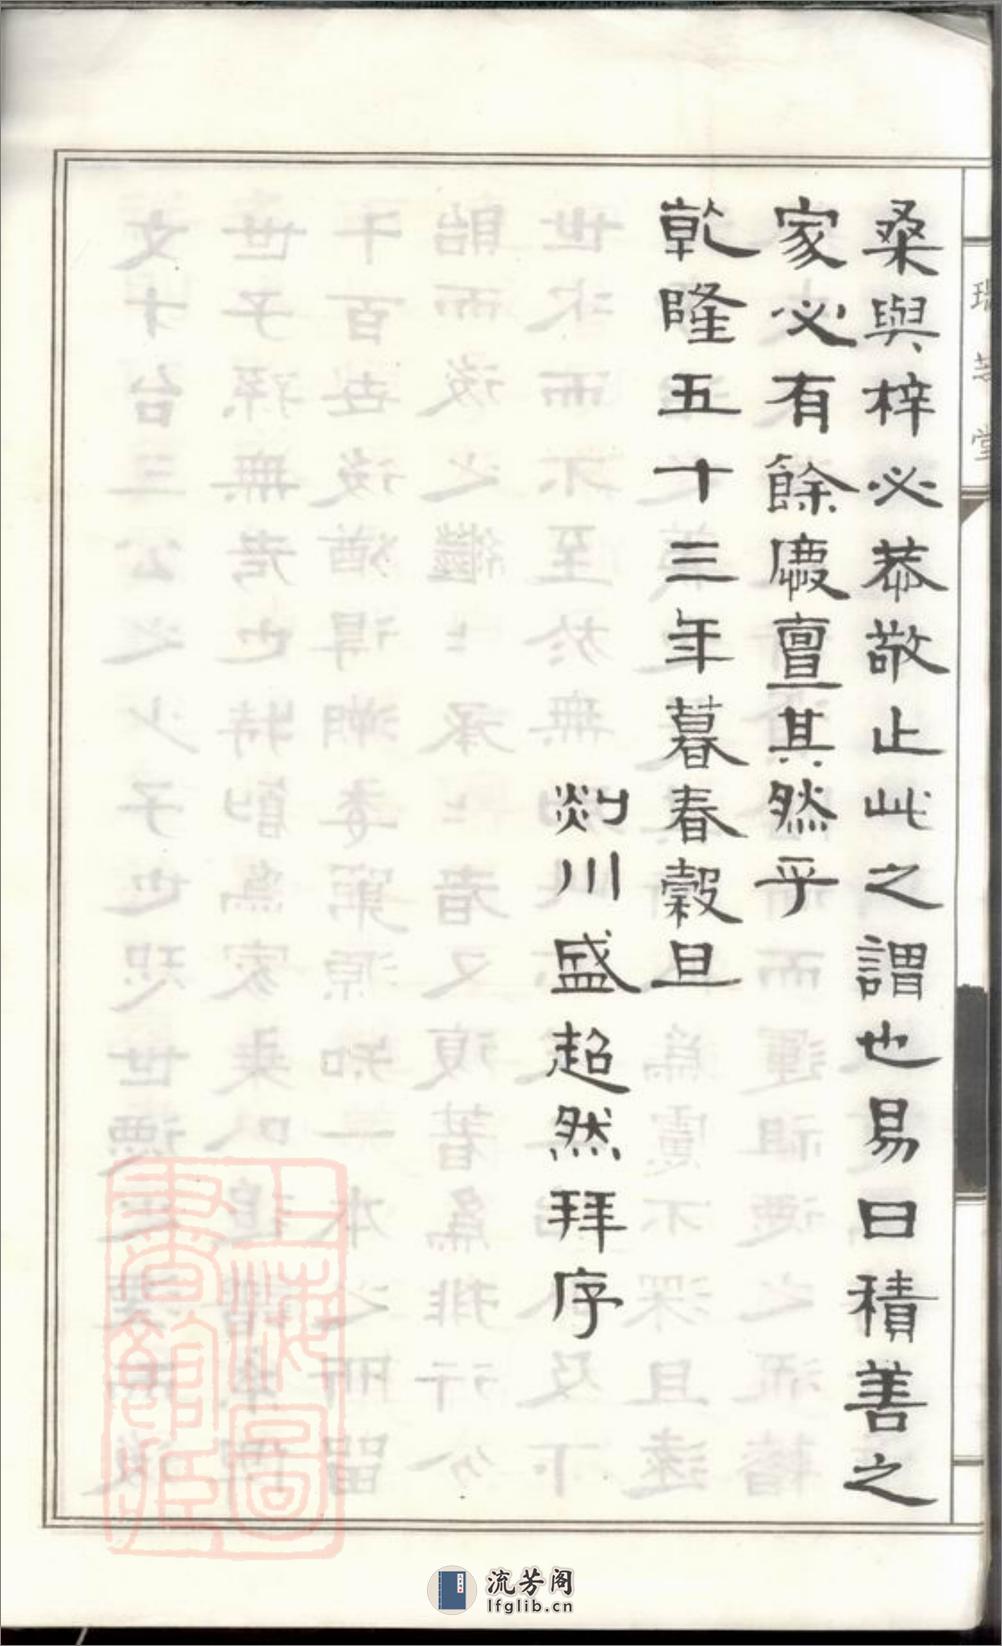 桑與梓必恭敬止此之謂也易曰積善之
家必有餘慶亶其然乎
乾隆五十三年暮春穀旦
剡川盛超然拜序
堂
上海圖書館藏
流芳阁
lfglib.cn